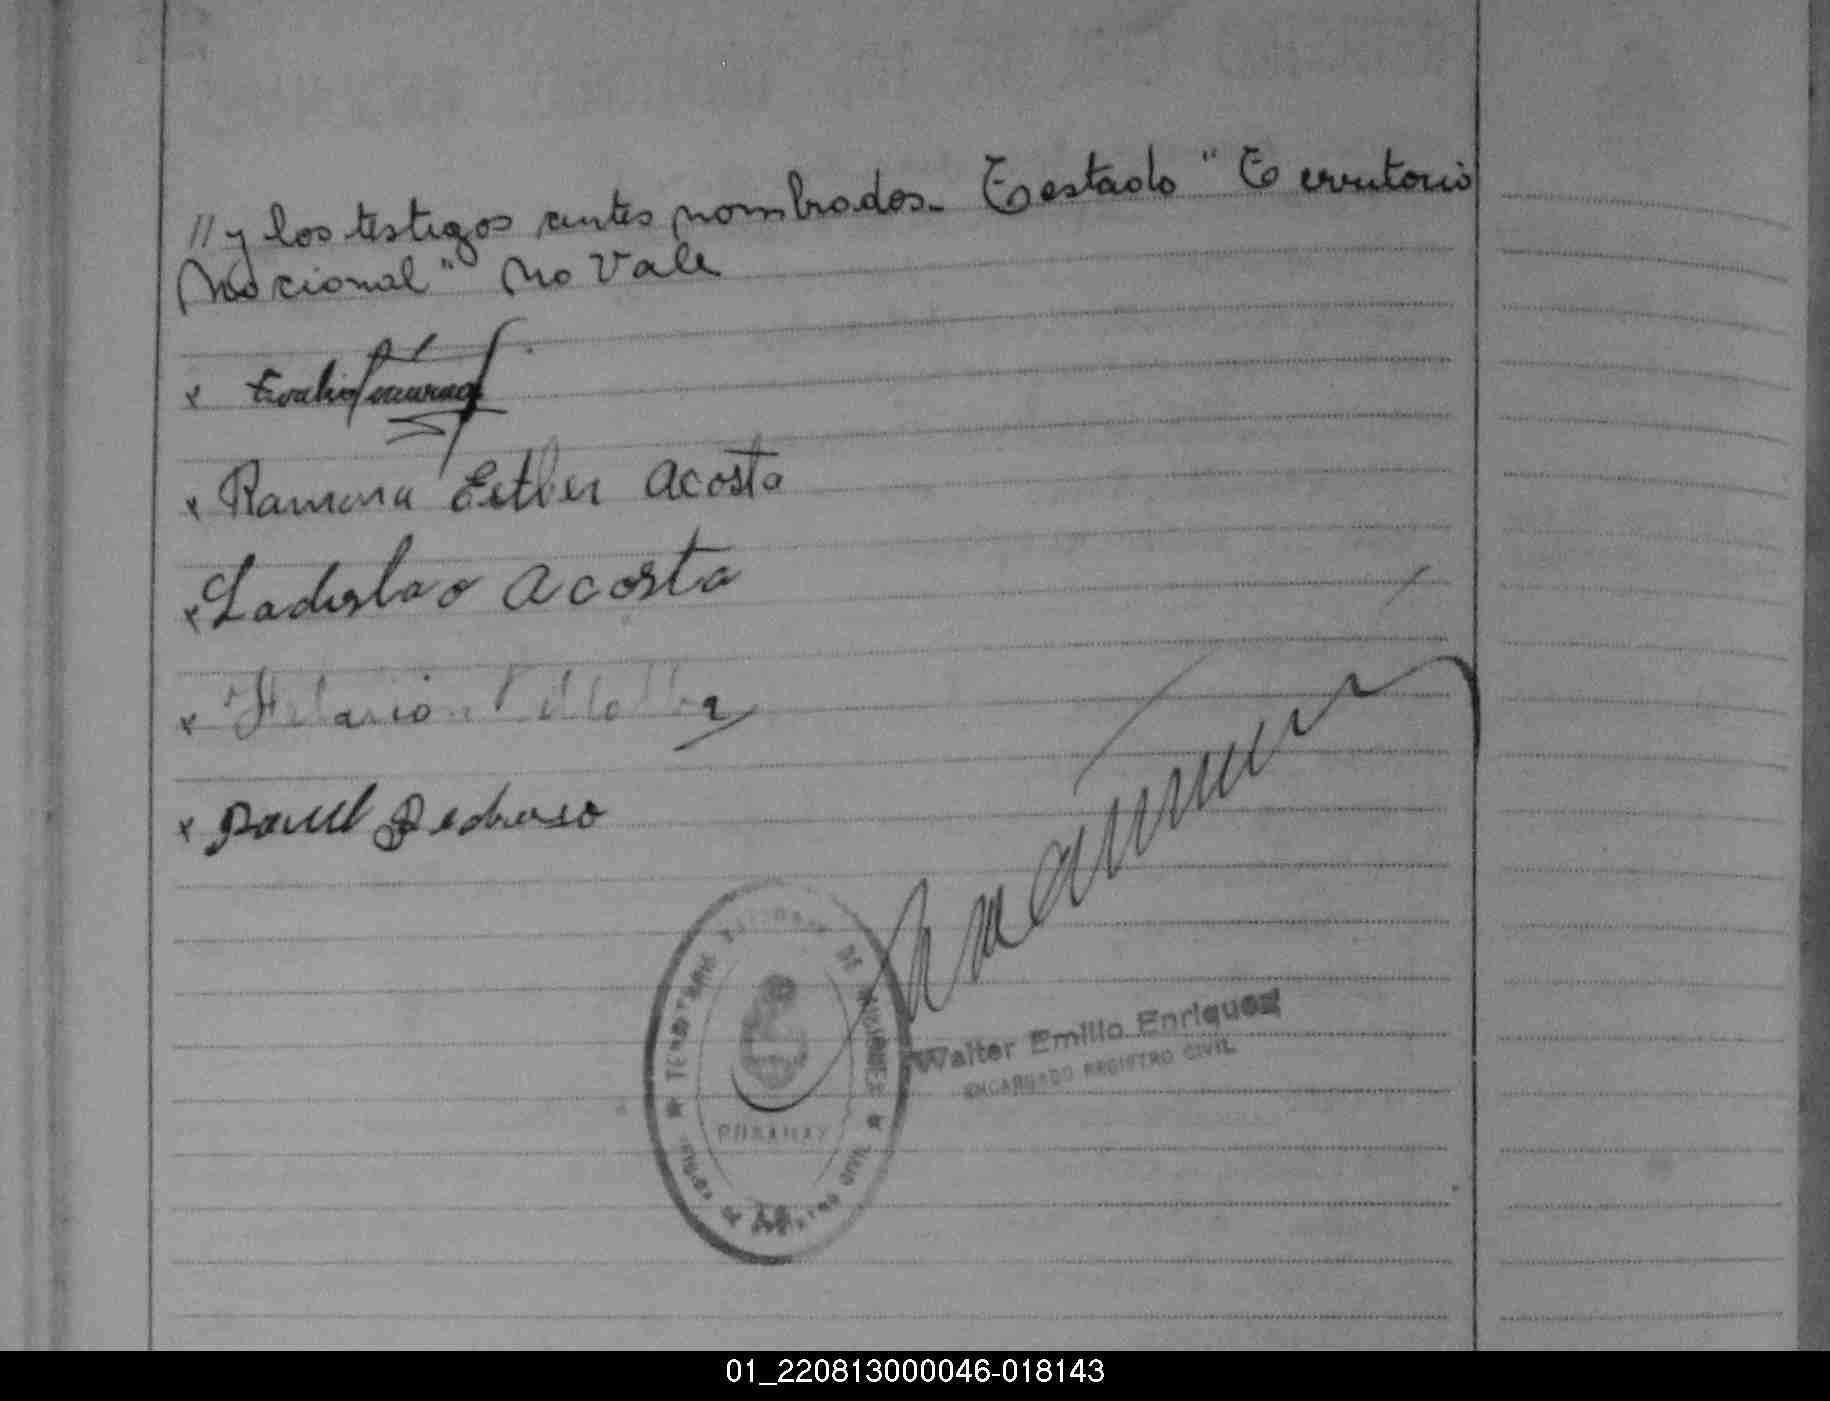 // y los testigos antes nombrados. Testado " Territorio
Nacional" No Vale
x
x Ramona Esther Acosta
x Ladislao Acosta
x Hilario Villalba
x Raul Pedroso
★ TERRITORIO NACIONAL DE MISIONES ★
PUBAHAY
DE REGISTRO CIVIL
Walter Emilio Enriquez
ENCARGADO REGISTRO CIVIL
01_220813000046-018143